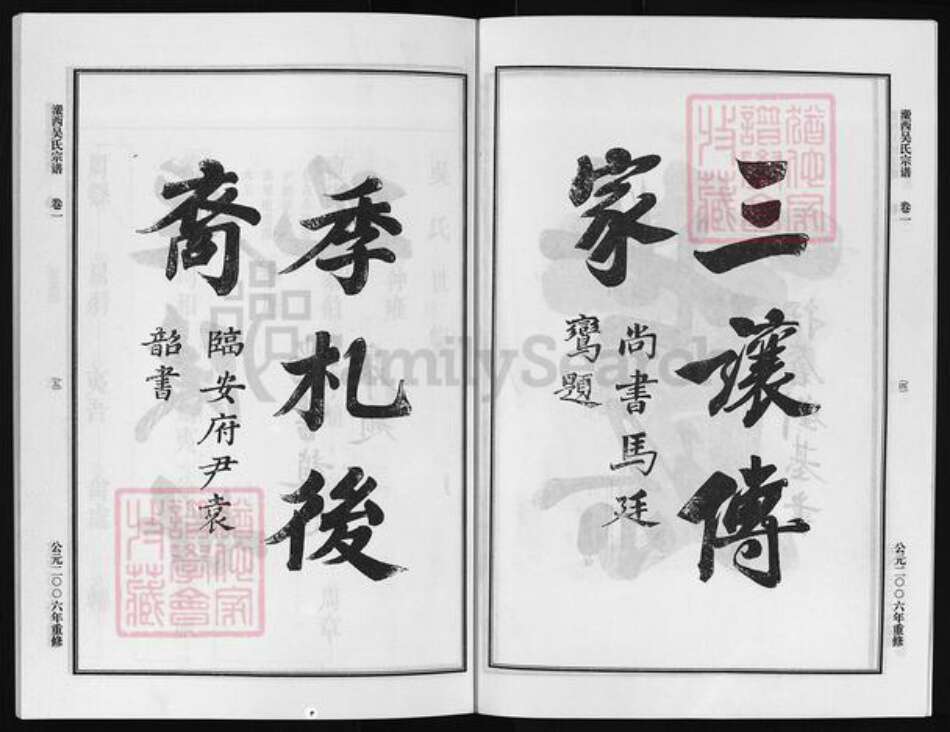 西吴氏宗谱 卷一
(四)
公元二〇〇六年重修
三讓傳
家
尚書馬廷
鸞題
猶他家
譜學會
收藏
季札後
裔
臨安府尹袁
韶書
猶他家
譜學會
收藏
西吴氏宗谱 卷一
(五)
公元二〇〇六年重修
FamilySearch